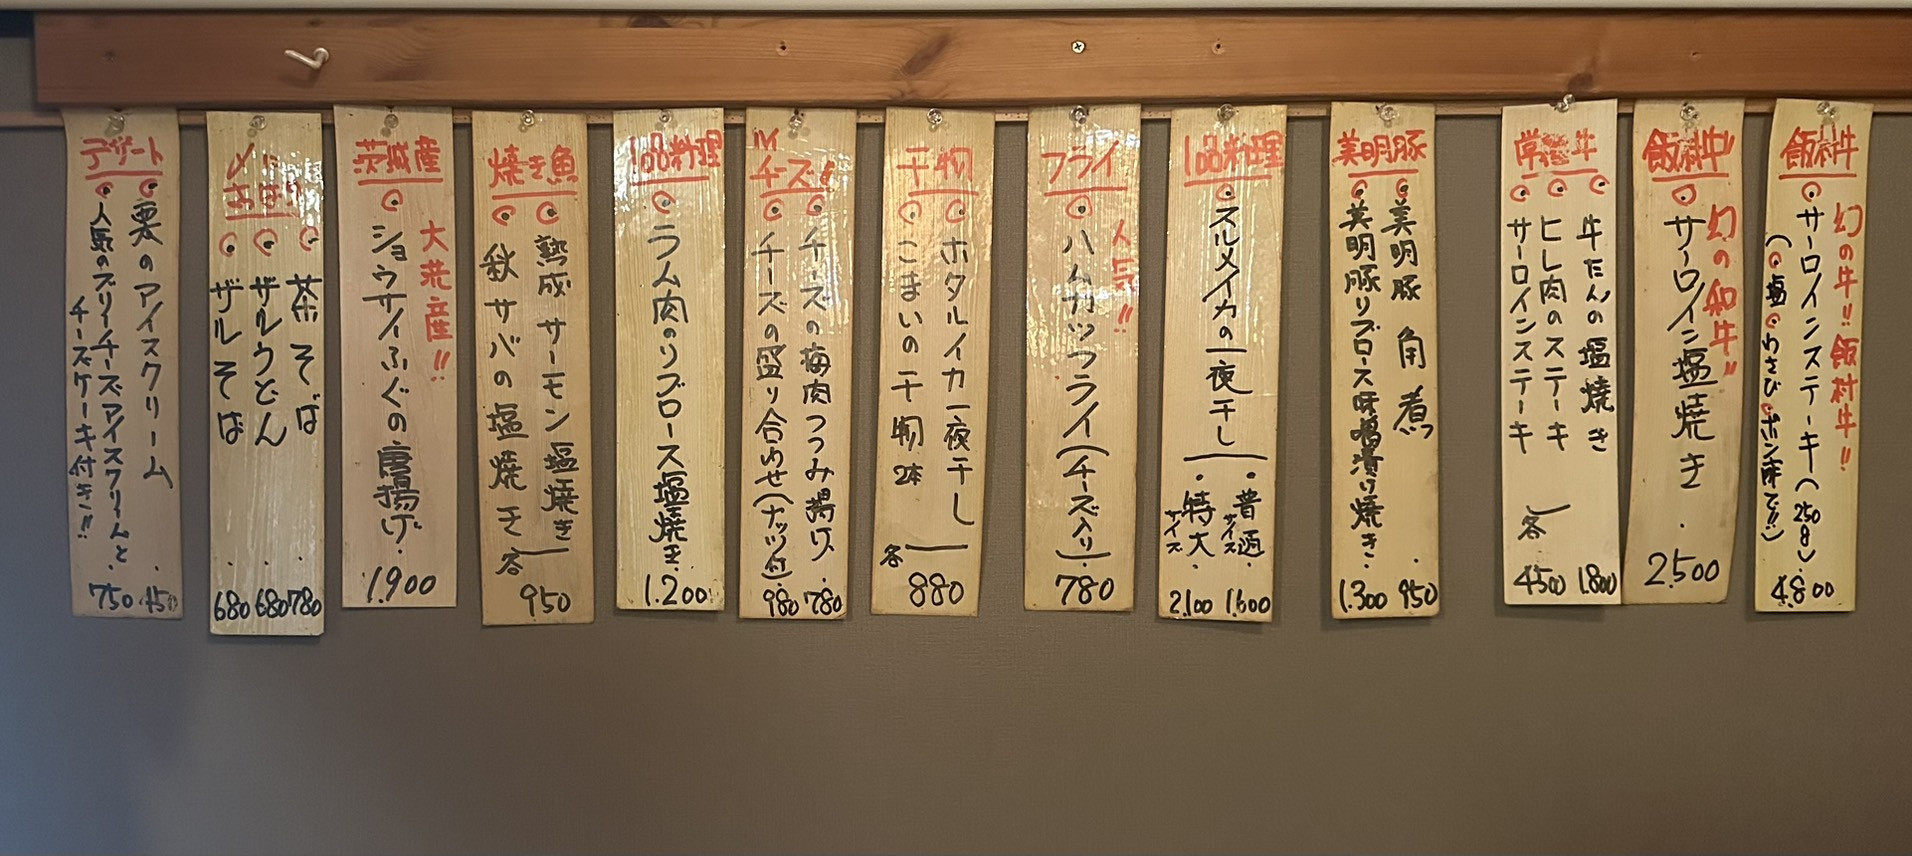 飯村牛
幻の牛!!飯村牛!!
サーロインステーキ(250g)
(塩わさびポン酢で!!)
4.800
飯村牛
幻の和牛!!
サーロイン塩焼き
2.500
常陸牛
牛たんの塩焼き
ヒレ肉のステーキ
サーロインステーキ
各
1.800
4500
美明豚
美明豚角煮
美明豚リブロース味噌漬け焼き
950
1.300
1品料理
スルメイカの一夜干し
普通サイズ
特大サイズ
1.600
2.100
フライ
人気!!
ハムカツフライ(チーズ入り)
780
干物
ホタルイカ一夜干し
こまいの干物2本
各
880
チーズ
チーズの梅肉つつみ揚げ
チーズの盛り合わせ(ナッツ付)
780
980
1品料理
ラム肉のリブロース塩焼き
1.200
焼き魚
熟成サーモン塩焼き
秋サバの塩焼き
各
950
茨城産
大洗産!!
ショウサイふぐの唐揚げ
1.900
茶そば
ザルうどん
ザルそば
780
680
680
デザート
栗のアイスクリーム
人気のブリーチーズアイスクリームと
チーズケーキ付き!!
450
750